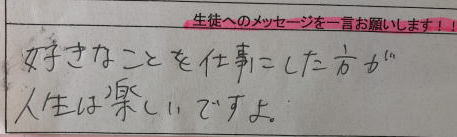 生徒へのメッセージを一言お願いします！！
好きなことを仕事にした方が
人生は楽しいですよ。